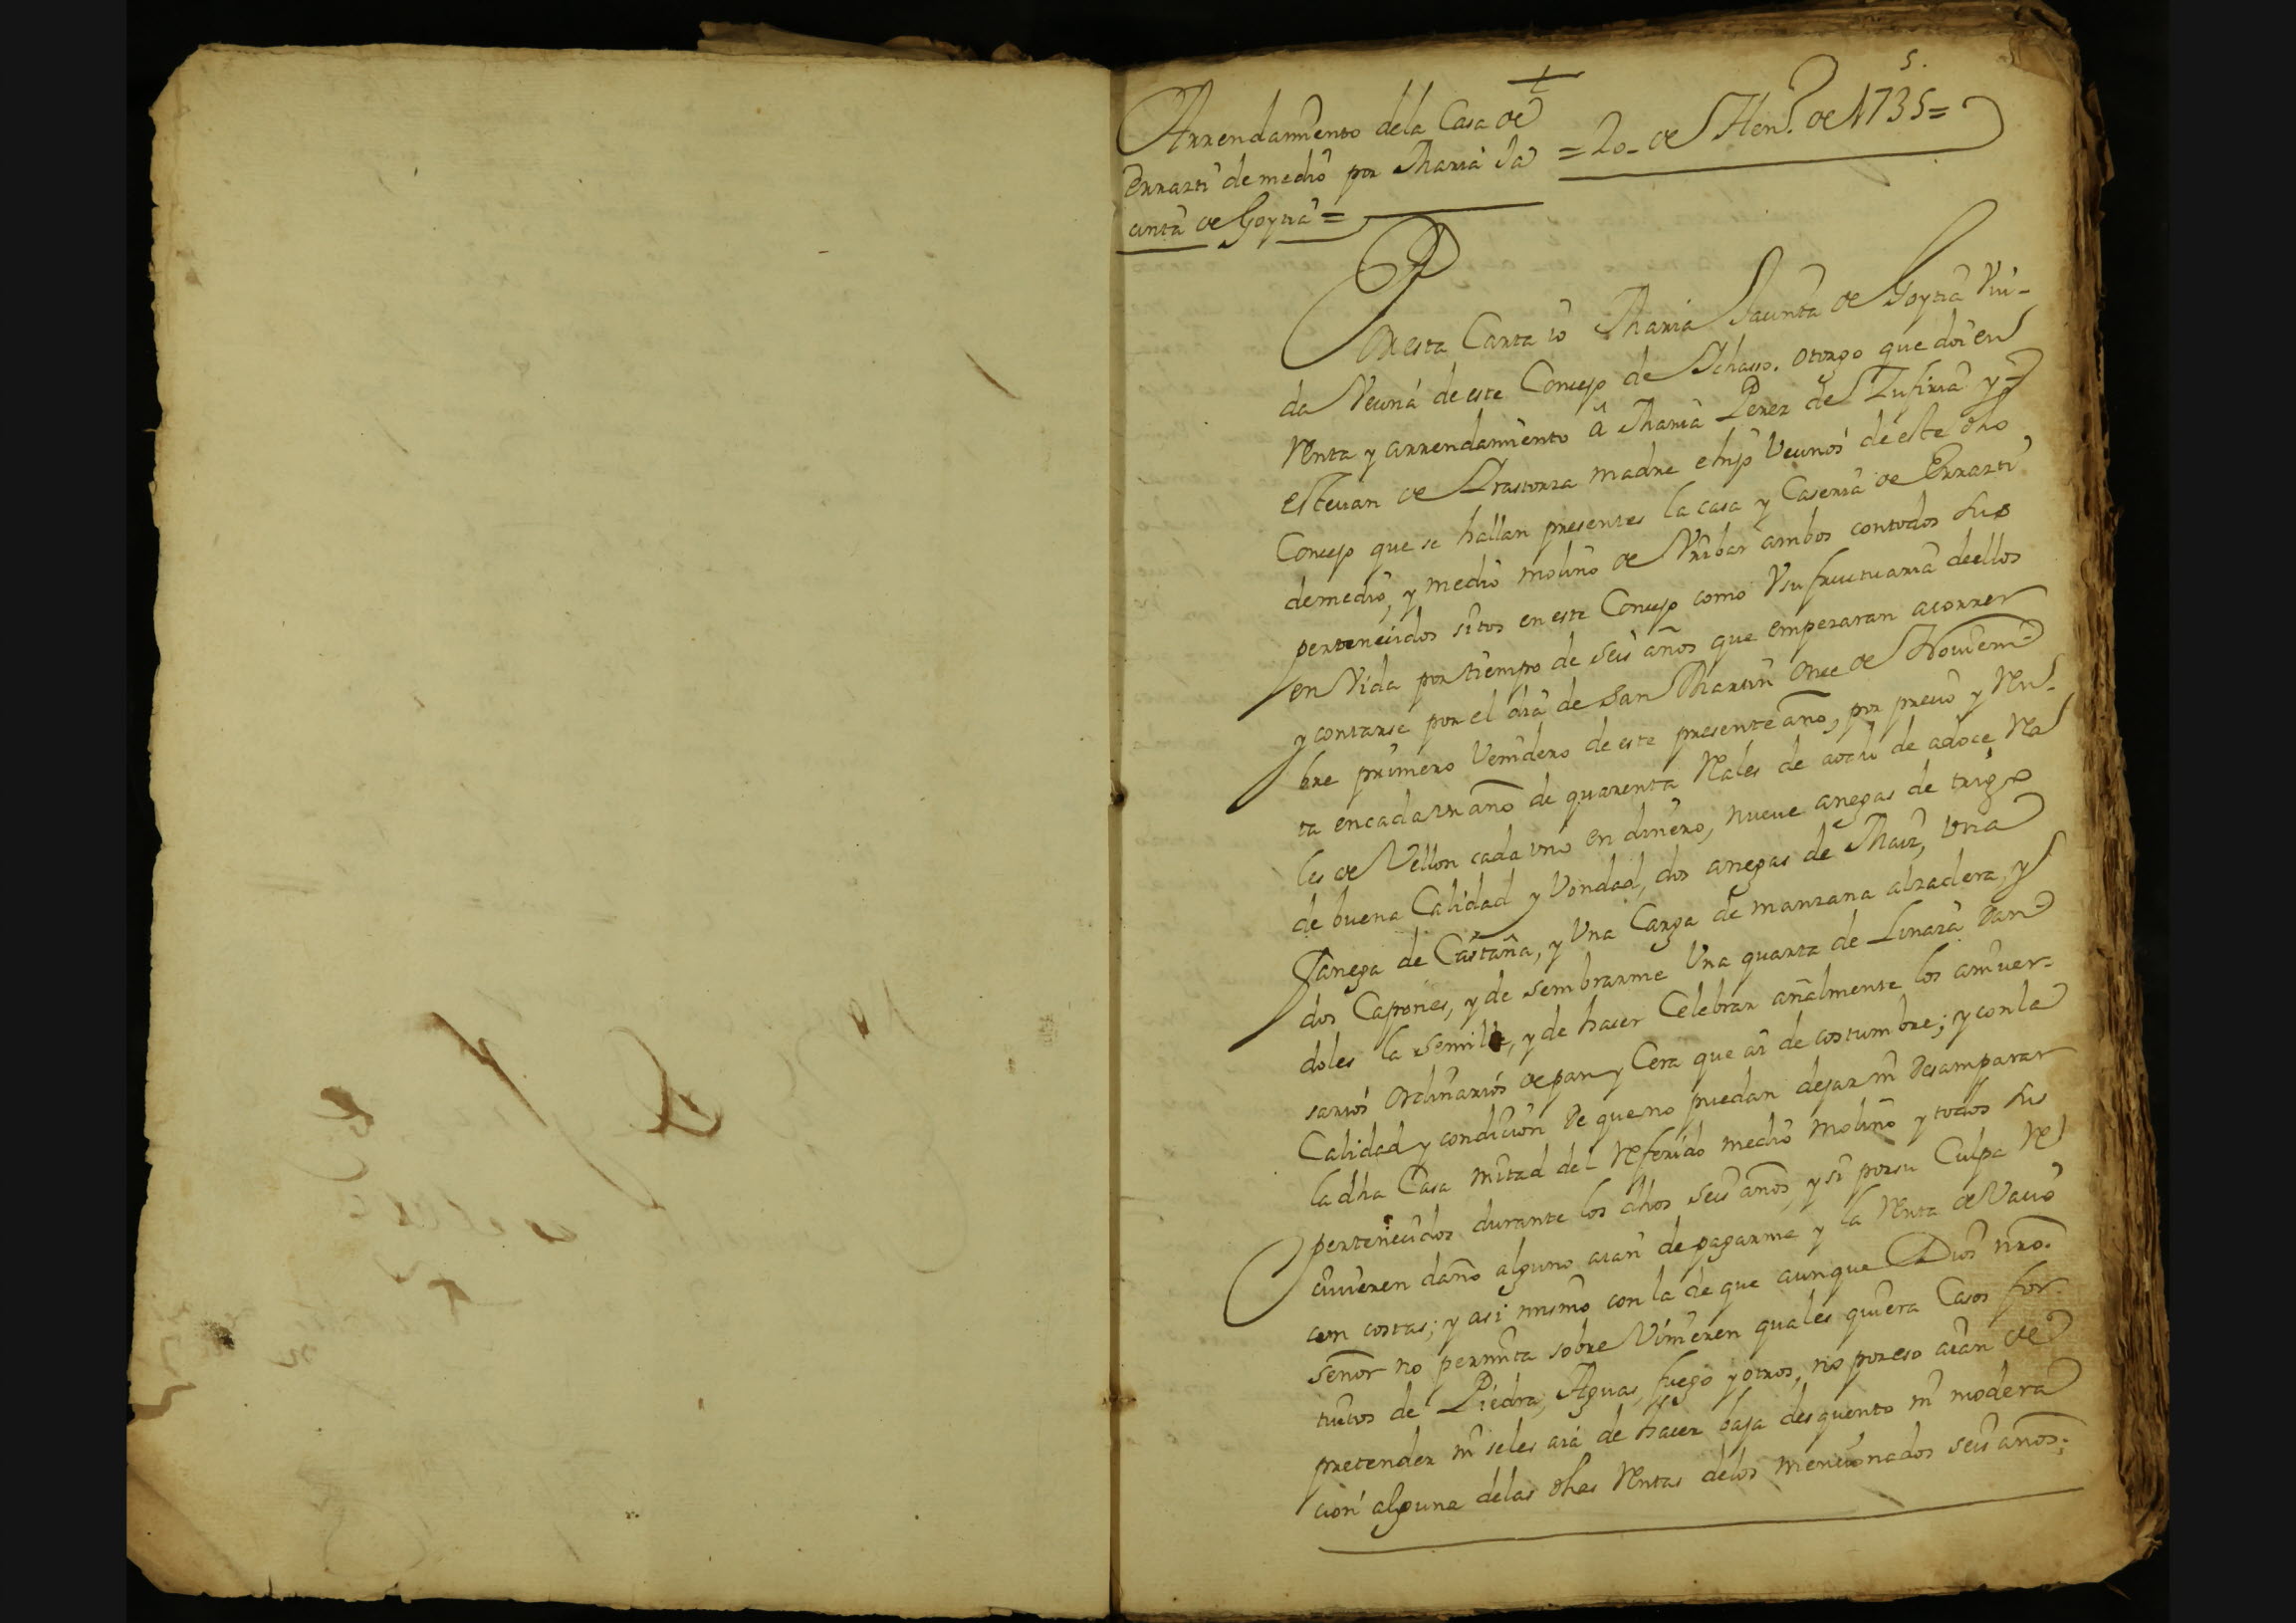 5.
Arrendamiento dela Casa de
Errazti de medio por Maria Ja
cinta de Goytia =
= 20 - de Hen.o de 1735 =
Por esta Carta io Maria Jacinta de Goytia Viu-
da Vecina de este Concejo de otorgo que doi en
Renta y arrendamiento â Maria Perez de y
estevan de madre e hijo Vecinos de este dho
Concejo que se hallan presentes la casa y Caseria de Errazti
de medio, y medio molino de Vribar ambos con todos sus
pertenecidos sitos en este Concejo como Vsufructuaria de ellos
en Vida por tiempo de seis años que empezaran a correr
y contarse por el dia de San Martin Once de Noviem
bre primero Venidero de este presente año, por precio y Ren-
ta en cada vn año de quarenta Rales de a ocho de a doce Ra
les de Vellon cada uno en dinero, nueve anegas de trigo
de buena Calidad y Vondad, dos anegas de Maiz, Una
fanega de Castaña, y Una Carga de manzana alzadera, y
dos Capones, y de sembrarme Una quarta de Linaza dan
doles la semilla, y de hacer Celebrar añalmente los aniver-
sarios Ordinarios de pan y Cera que ai de costumbre; y con la
Calidad y condicion de que no puedan dejar ni desamparar
la dha Casa mitad del referido medio molino y todos sus
pertenecidos durante los dhos seis años, y si por su Culpa re
civieren daño alguno aian de pagarme y la renta de Vacio
con costas; y asi mismo con la de que aunque Dios nro.
señor no permita sobre Vinieren quales quiera Casos for-
tuitos de Piedra, Aguas, fuego y otros, no por eso aian de
pretender ni seles aia de hacer baja desquento ni modera
cion alguna delas dhas Rentas delos mencionados seis años;